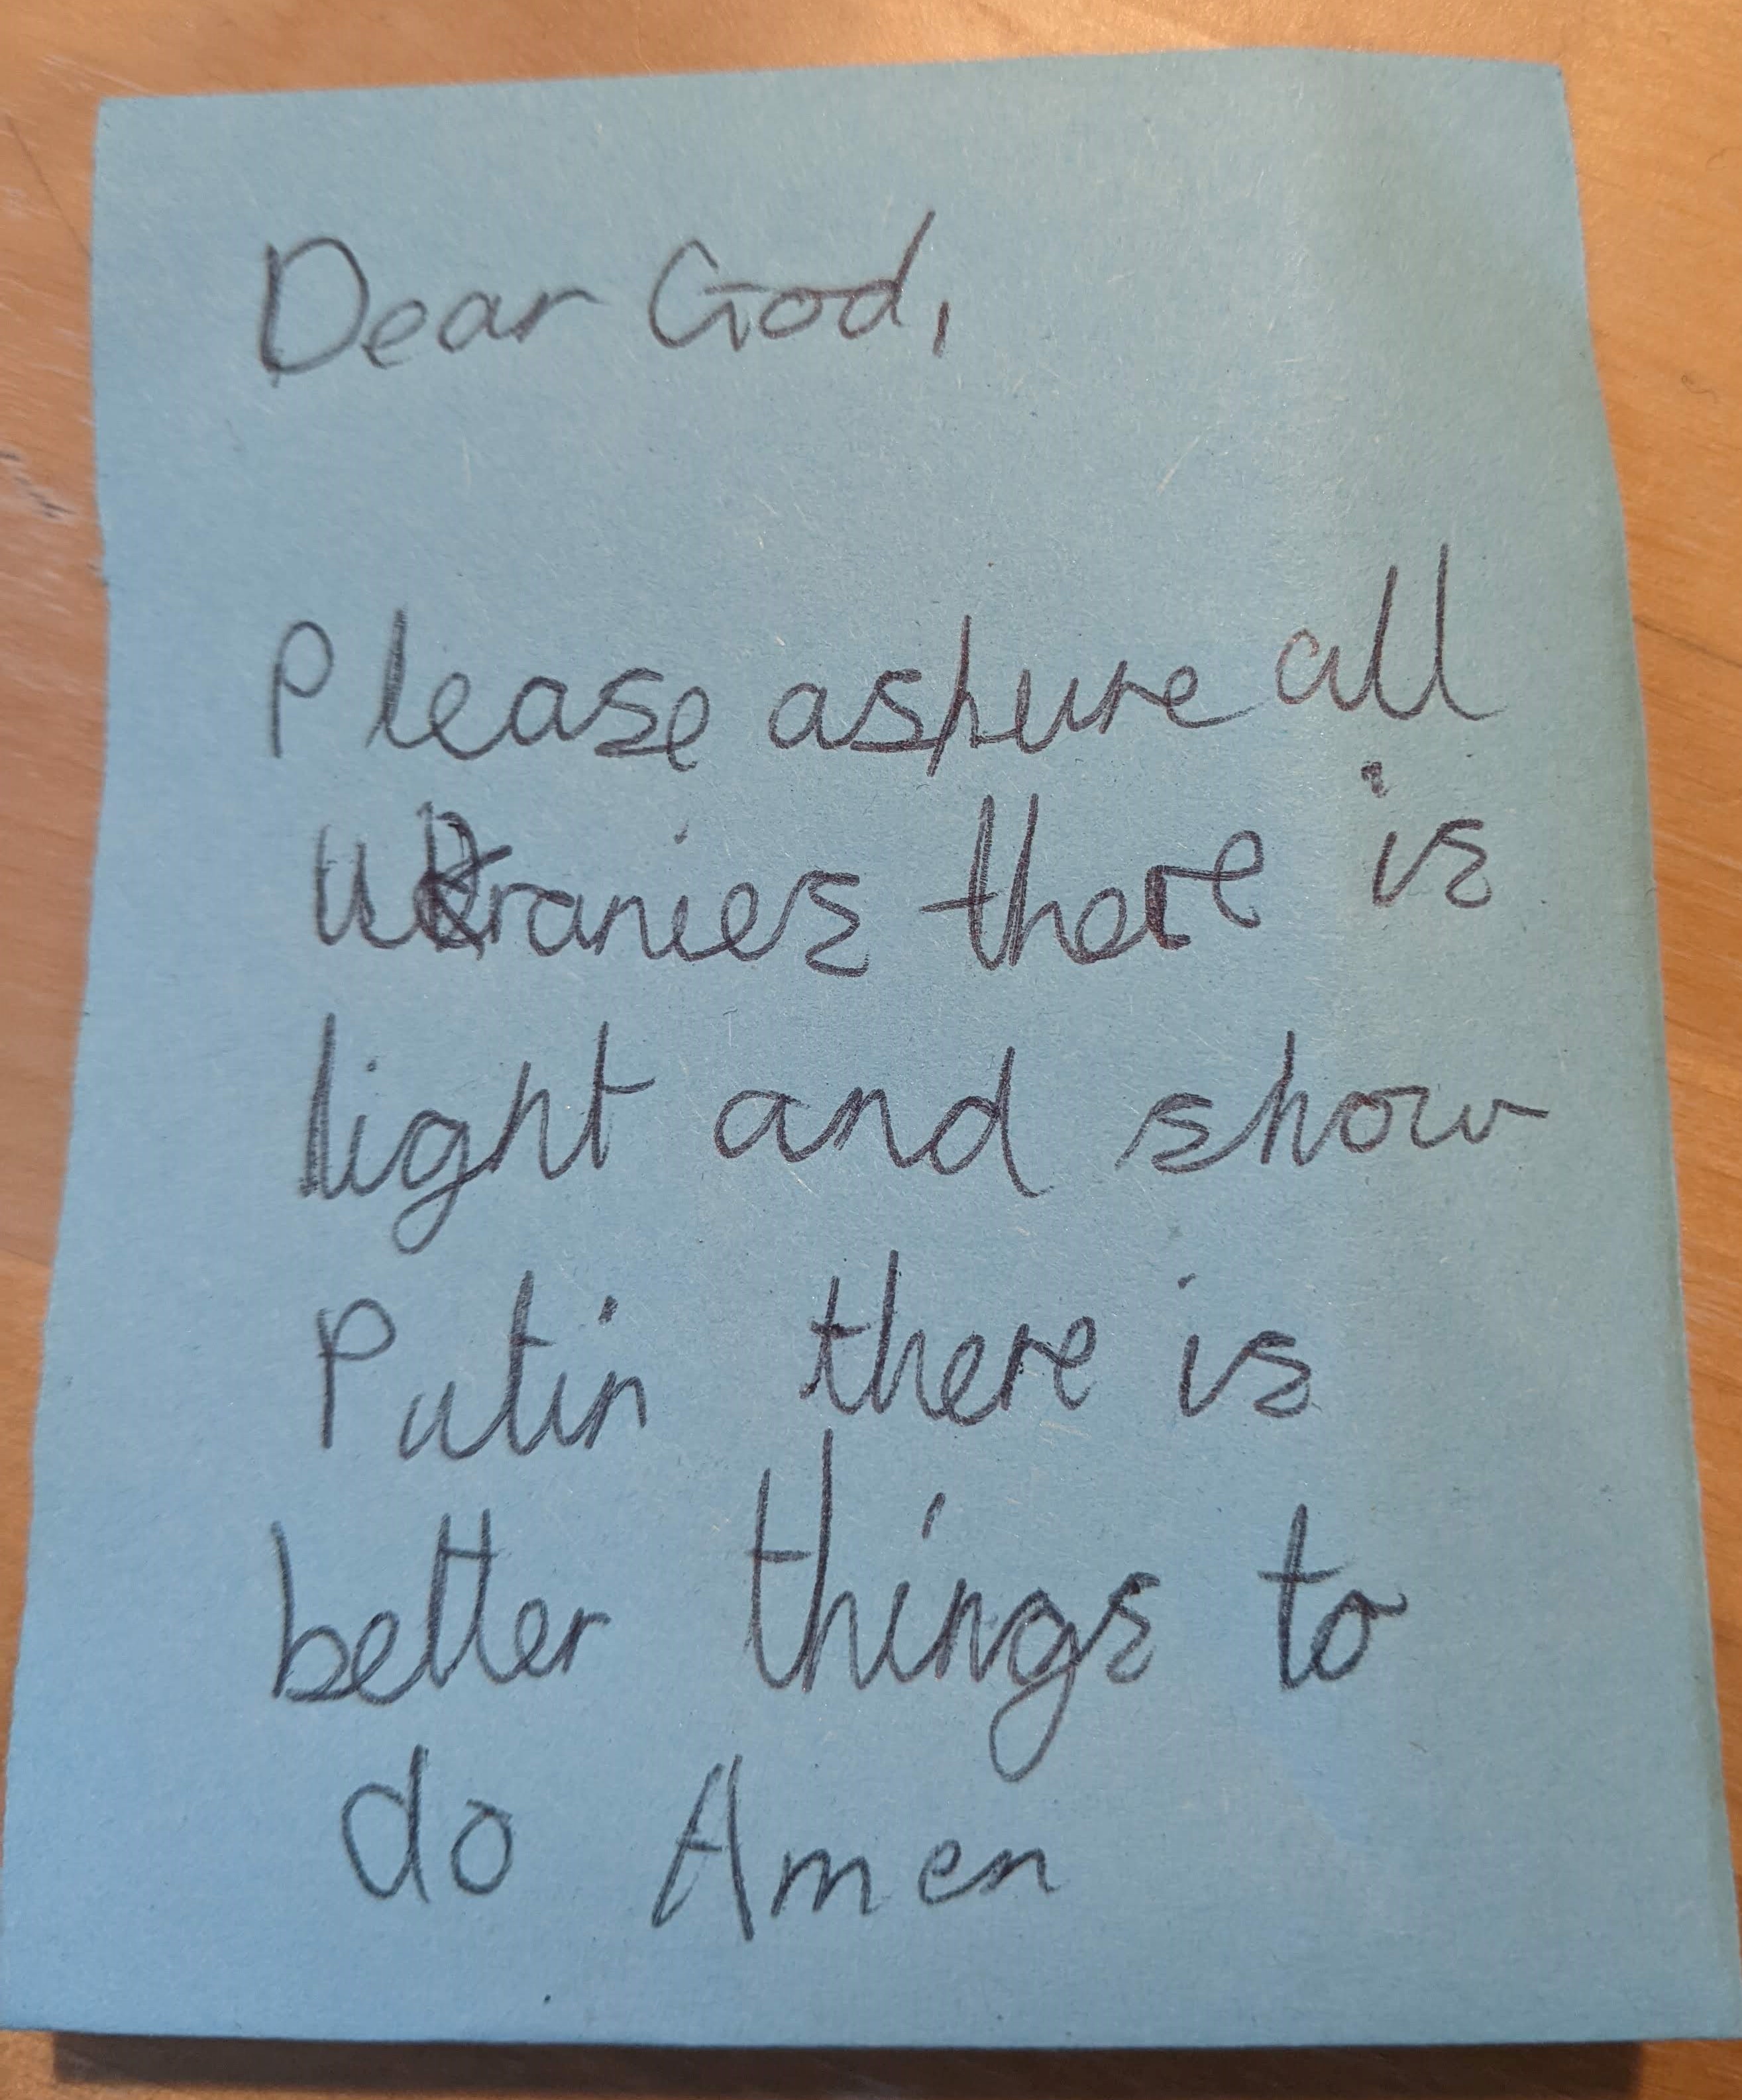 Dear God,
Please ashure all
Ukranies there is
light and show
Putin there is
better things to
do Amen